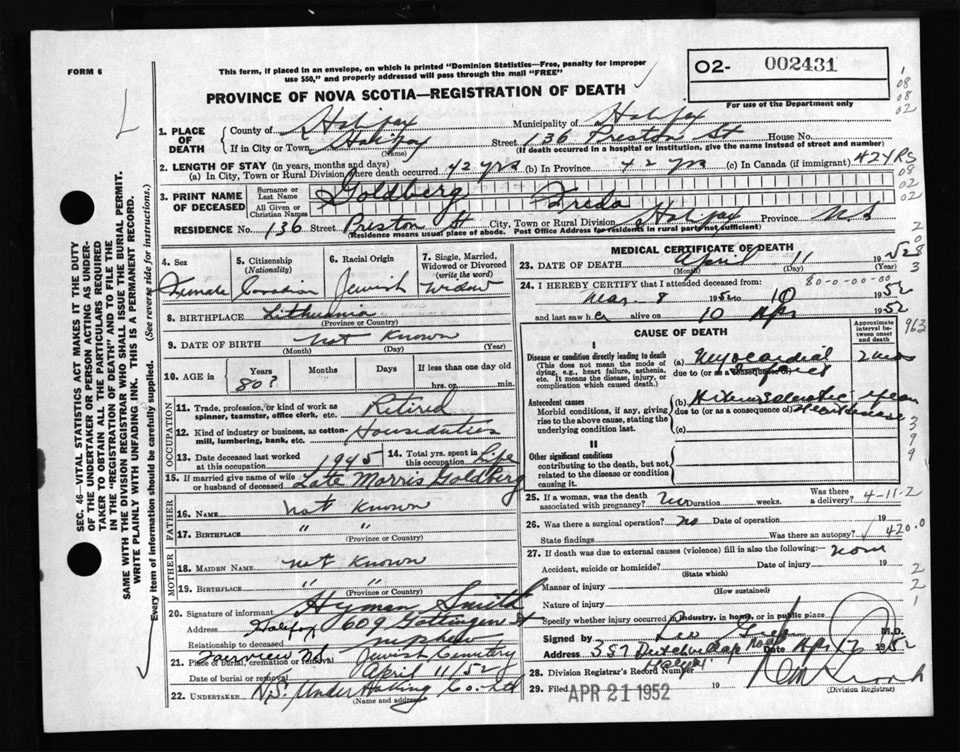 FORM 6
This form, if placed in an envelope, on which is printed "Dominion Statistics—Free, penalty for improper
use $50," and properly addressed will pass through the mail "FREE"
O2- 002431
For use of the Department only
PROVINCE OF NOVA SCOTIA—REGISTRATION OF DEATH
1. PLACE OF DEATH
County of Halifax Municipality of Halifax
If in City or Town Halifax (Name) Street 136 Preston St House No.
(If death occurred in a hospital or institution, give the name instead of street and number)
2. LENGTH OF STAY (in years, months and days)
(a) In City, Town or Rural Division where death occurred 42 yrs (b) In Province 42 yrs (c) In Canada (if immigrant) 42 YRS
3. PRINT NAME OF DECEASED
Surname or Last Name Goldberg
All Given or Christian Names Freda
RESIDENCE No. 136 Street Preston St City, Town or Rural Division Halifax Province N.S
(Residence means usual place of abode. Post Office Address for residents in rural parts not sufficient)
4. Sex Female
5. Citizenship (Nationality) Canadian
6. Racial Origin Jewish
7. Single, Married, Widowed or Divorced (write the word) Widow
8. BIRTHPLACE Lithuania
(Province or Country)
9. DATE OF BIRTH Not Known
(Month) (Day) (Year)
10. AGE in Years 80? Months Days If less than one day old hrs. or min.
OCCUPATION
11. Trade, profession, or kind of work as spinner, teamster, office clerk, etc. Retired
12. Kind of industry or business, as cotton-mill, lumbering, bank, etc. Houseduties
13. Date deceased last worked at this occupation 1945
14. Total yrs. spent in this occupation Life
15. If married give name of wife or husband of deceased Late Morris Goldberg
FATHER
16. NAME Not Known
17. BIRTHPLACE " "
(Province or Country)
MOTHER
18. MAIDEN NAME Not Known
19. BIRTHPLACE " "
(Province or Country)
20. Signature of informant Hyman Smith
Address Halifax 609 Gottingen St
Relationship to deceased nephew
21. Place of burial, cremation or removal Fairview N.S. Jewish Cemetery
Date of burial or removal April 11/52
22. UNDERTAKER N.S. Undertaking Co. Ltd
(Name and address)
MEDICAL CERTIFICATE OF DEATH
23. DATE OF DEATH April 11 1952
(Month) (Day) (Year)
80-0-00-00
24. I HEREBY CERTIFY that I attended deceased from:
Mar. 8 1952 to 10 1952
and last saw her alive on 10 Apr 1952
CAUSE OF DEATH
Approximate interval between onset and death
I
Disease or condition directly leading to death
(This does not mean the mode of dying, e.g., heart failure, asthenia, etc. It means the disease, injury, or complication which caused death.)
(a) Myocardial
due to (or as a consequence of)
Antecedent causes
Morbid conditions, if any, giving rise to the above cause, stating the underlying condition last.
(b)
due to (or as a consequence of) Heart disease
(c)
II
Other significant conditions
contributing to the death, but not related to the disease or condition causing it.
25. If a woman, was the death associated with pregnancy? No Duration weeks. Was there a delivery? 4-11-2
26. Was there a surgical operation? No Date of operation 19
State findings Was there an autopsy? 420.0
27. If death was due to external causes (violence) fill in also the following:—
Accident, suicide or homicide? (State which) Date of injury 19
Manner of injury (How sustained)
Nature of injury
Specify whether injury occurred in industry, in home, or in public place
Signed by M.D.
Address 387 Date Apr 1952
28. Division Registrar's Record Number
29. Filed APR 21 1952 19
(Division Registrar)
SEC. 46—VITAL STATISTICS ACT MAKES IT THE DUTY
OF THE UNDERTAKER OR PERSON ACTING AS UNDER-
TAKER TO OBTAIN ALL THE PARTICULARS REQUIRED
IN THE "REGISTRATION OF DEATH" AND TO FILE THE
SAME WITH THE DIVISION REGISTRAR WHO SHALL ISSUE THE BURIAL PERMIT.
WRITE PLAINLY WITH UNFADING INK. THIS IS A PERMANENT RECORD.
Every item of information should be carefully supplied. (See reverse side for instructions.)